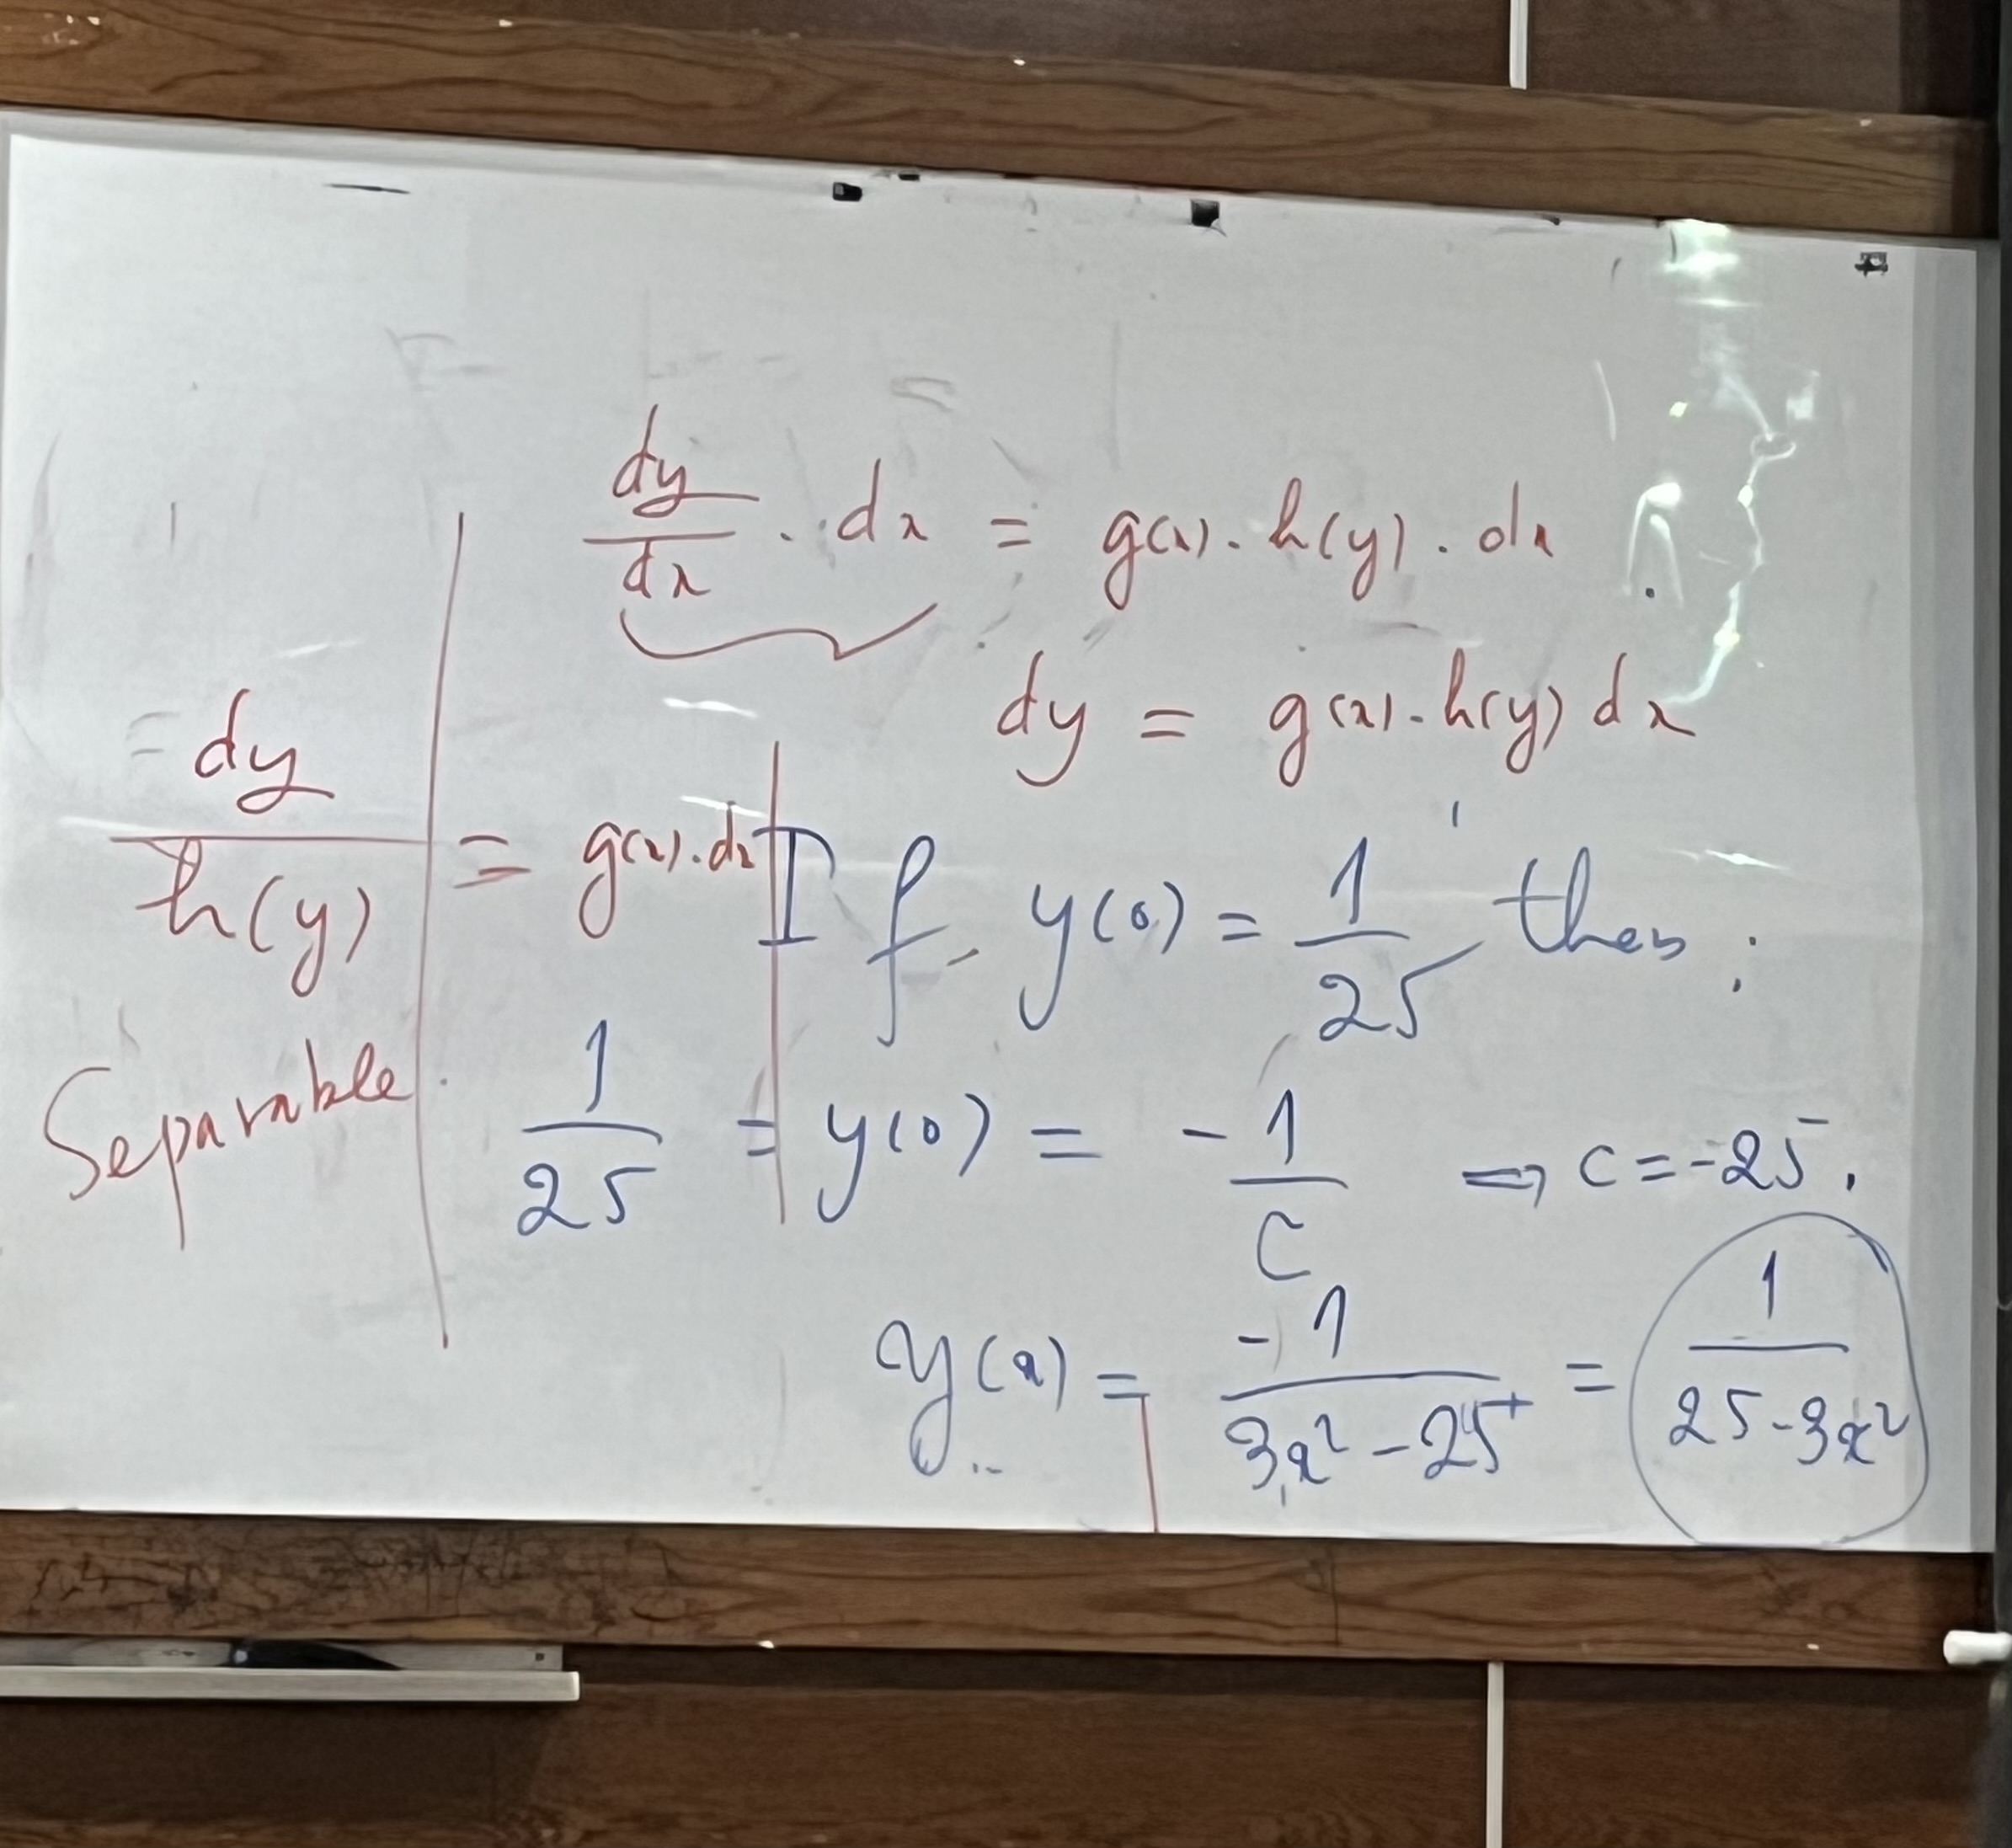 dy/dx . dx = g(x) . h(y) . dx
dy = g(x) . h(y) dx
dy/h(y) = g(x) . dx
Separable
If y(0) = 1/25 then :
1/25 = y(0) = -1/C ⇒ C = -25 .
y(x) = -1/(3x² - 25) = 1/(25 - 3x²)